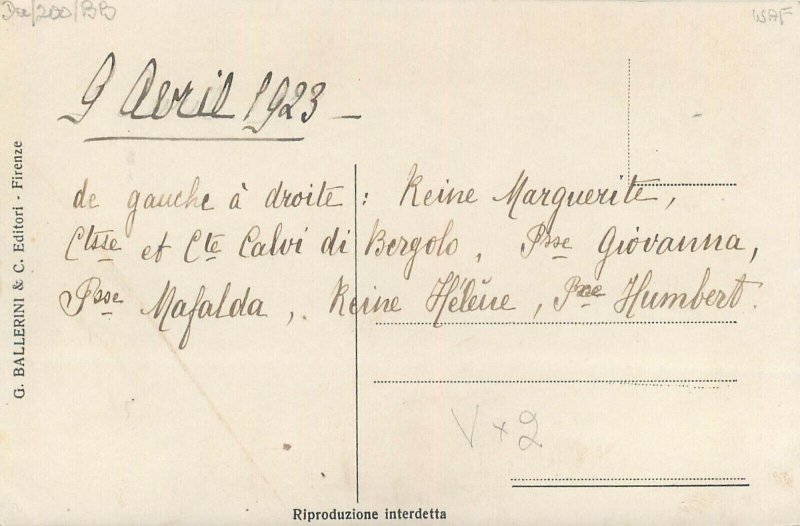 Da/200/BB
WAF
9 Avril 1923 –
de gauche à droite : Reine Marguerite,
Ctsse et Cte Calvi di Bergolo, Psse Giovanna,
Psse Mafalda, Reine Hélène, Pce Humbert.
V x 2
G. BALLERINI & C. Editori - Firenze
Riproduzione interdetta